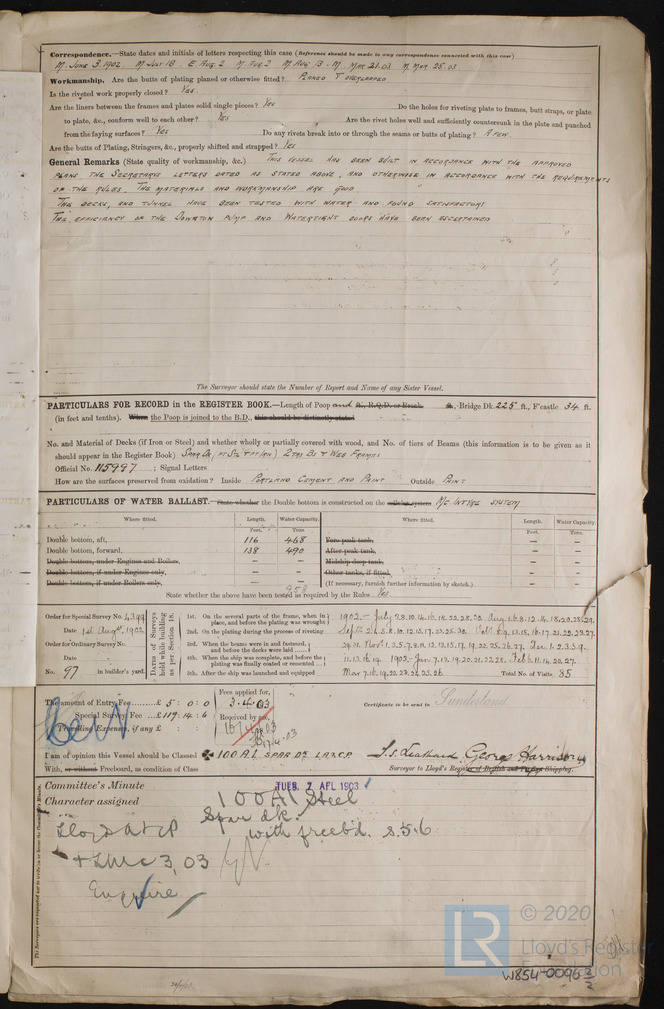 Correspondence.—State dates and initials of letters respecting this case (Reference should be made to any correspondence connected with this case)
M. June 3. 1902 M July 18. E Aug 2 M Aug 2 M Aug 13. M. Mar 21.03 M Mar. 25.03
Workmanship. Are the butts of plating planed or otherwise fitted? Planed & overlapped
Is the riveted work properly closed? Yes
Are the liners between the frames and plates solid single pieces? Yes Do the holes for riveting plate to frames, butt straps, or plate
to plate, &c., conform well to each other? Yes Are the rivet holes well and sufficiently countersunk in the plate and punched
from the faying surfaces? Yes Do any rivets break into or through the seams or butts of plating? A few
Are the butts of Plating, Stringers, &c., properly shifted and strapped? Yes
General Remarks (State quality of workmanship, &c.) This vessel has been built in accordance with the approved
plans the Secretarys letters dated as stated above, and otherwise in accordance with the requirements
of the rules. The materials and workmanship are good
The decks, and tunnel have been tested with water and found satisfactory
The efficiency of the Downton pump and watertight doors have been ascertained
The Surveyor should state the Number of Report and Name of any Sister Vessel.
PARTICULARS FOR RECORD in the REGISTER BOOK.—Length of Poop and ft., R.Q.D. or Break ft., Bridge Dk. 225 ft., F'castle 34 ft.
(in feet and tenths). When the Poop is joined to the B.D., this should be distinctly stated
No. and Material of Decks (if Iron or Steel) and whether wholly or partially covered with wood, and No. of tiers of Beams (this information is to be given as it
should appear in the Register Book) Spar Dk, 2 Trs Bs & Web Frames
Official No. 115997 ; Signal Letters
How are the surfaces preserved from oxidation? Inside Portland Cement and Paint Outside Paint
PARTICULARS OF WATER BALLAST.—State whether the Double bottom is constructed on the cellular system McIntyre system
Where fitted. Length. Water Capacity. Where fitted. Length. Water Capacity.
Feet. Tons. Feet. Tons.
Double bottom, aft, 116 468 Fore peak tank, — —
Double bottom, forward, 138 490 After peak tank, — —
Double bottom, under Engines and Boilers, — — Midship deep tank, — —
Double bottom, if under Engines only, — — Other tanks, if fitted, — —
Double bottom, if under Boilers only, — — (If necessary, furnish further information by sketch.)
958
State whether the above have been tested as required by the Rules Yes
Order for Special Survey No. 4399
Date 1st Augst. 1902
Order for Ordinary Survey No.
Date
No. 97 in builder's yard.
Dates of Surveys held while building as per Section 18.
1st. On the several parts of the frame, when in place, and before the plating was wrought
2nd. On the plating during the process of riveting
3rd. When the beams were in and fastened, and before the decks were laid
4th. When the ship was complete, and before the plating was finally coated or cemented
5th. After the ship was launched and equipped
1902.— July 7.8.10.14.16.18.22.28.30. Aug. 1.6.8.12.14.18.20.25.29.
Sept. 2.4.5.8.10.12.13.17.23.25.30. Oct. 1.6.9.13.15.16.17.21.22.23.27.
29.31. Nov. 1.3.5.7.8.11.12.13.15.17.19.22.25.26.27. Dec. 1.2.3.5.9.
11.13.16.19. 1903.- Jan. 7.13.19.20.21.22.28. Feb. 6.11.14.20.27.
Mar 7.16.19.20.23.24.25.26 Total No. of Visits, 85
The amount of Entry Fee £ 5 : 0 : 0
Special Survey Fee £ 119 : 14 : 6
Travelling Expenses, if any £ : :
Fees applied for,
3.4.03
Received by me,
16/4/03
17.4.03
Certificate to be sent to Sunderland
I am of opinion this Vessel should be Classed ✠ 100 A1 SPAR DK L.A.& C.P.
With, or without Freeboard, as condition of Class
J. S. Leathard. George Harrison
Surveyor to Lloyd's Register of British and Foreign Shipping.
Committee's Minute TUES. 7 APL 1903
Character assigned 100A1 Steel
Spar dk.
with freebd. s.5.6
Lloyds A & CP
+ LMC 3,03
Enquire
The Surveyors are requested not to write on or below the Committee's Minute.
© 2020
Lloyd's Register
Foundation
LR
W854-0096 2/2